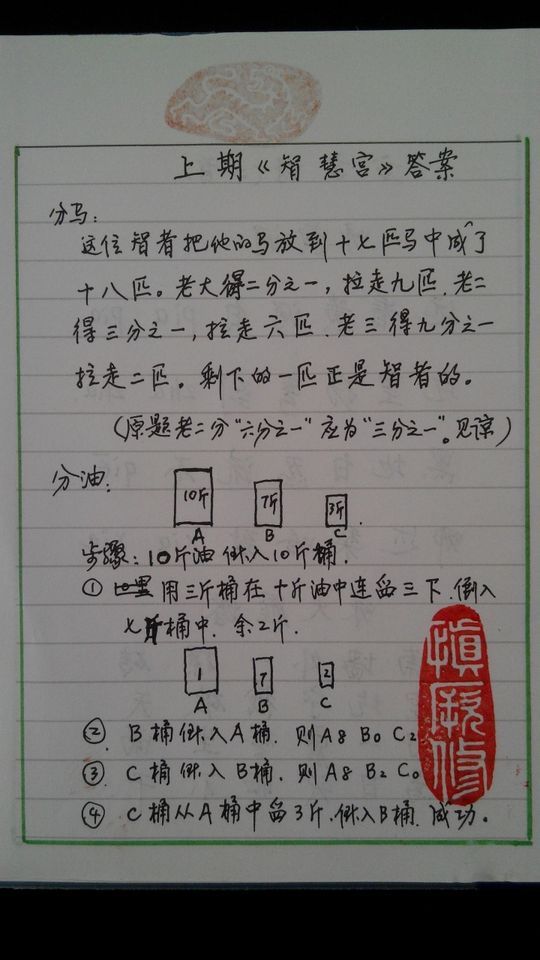 上期《智慧宫》答案
分马：
这位智者把他的马放到十七匹马中成了
十八匹。老大得二分之一，拉走九匹．老二
得三分之一，拉走六匹．老三得九分之一
拉走二匹。剩下的一匹正是智者的。
（原题老二分“六分之一”应为“三分之一”。见谅）
分油：
10斤 7斤 3斤
A B C
步骤：10斤油倒入10斤桶．
① 用三斤桶在十斤油中连舀三下．倒入
七斤桶中．余2斤．
1 7 2
A B C
② B桶倒入A桶．则A8 B0 C2
③ C桶倒入B桶．则A8 B2 C0
④ C桶从A桶中舀3斤．倒入B桶．成功。